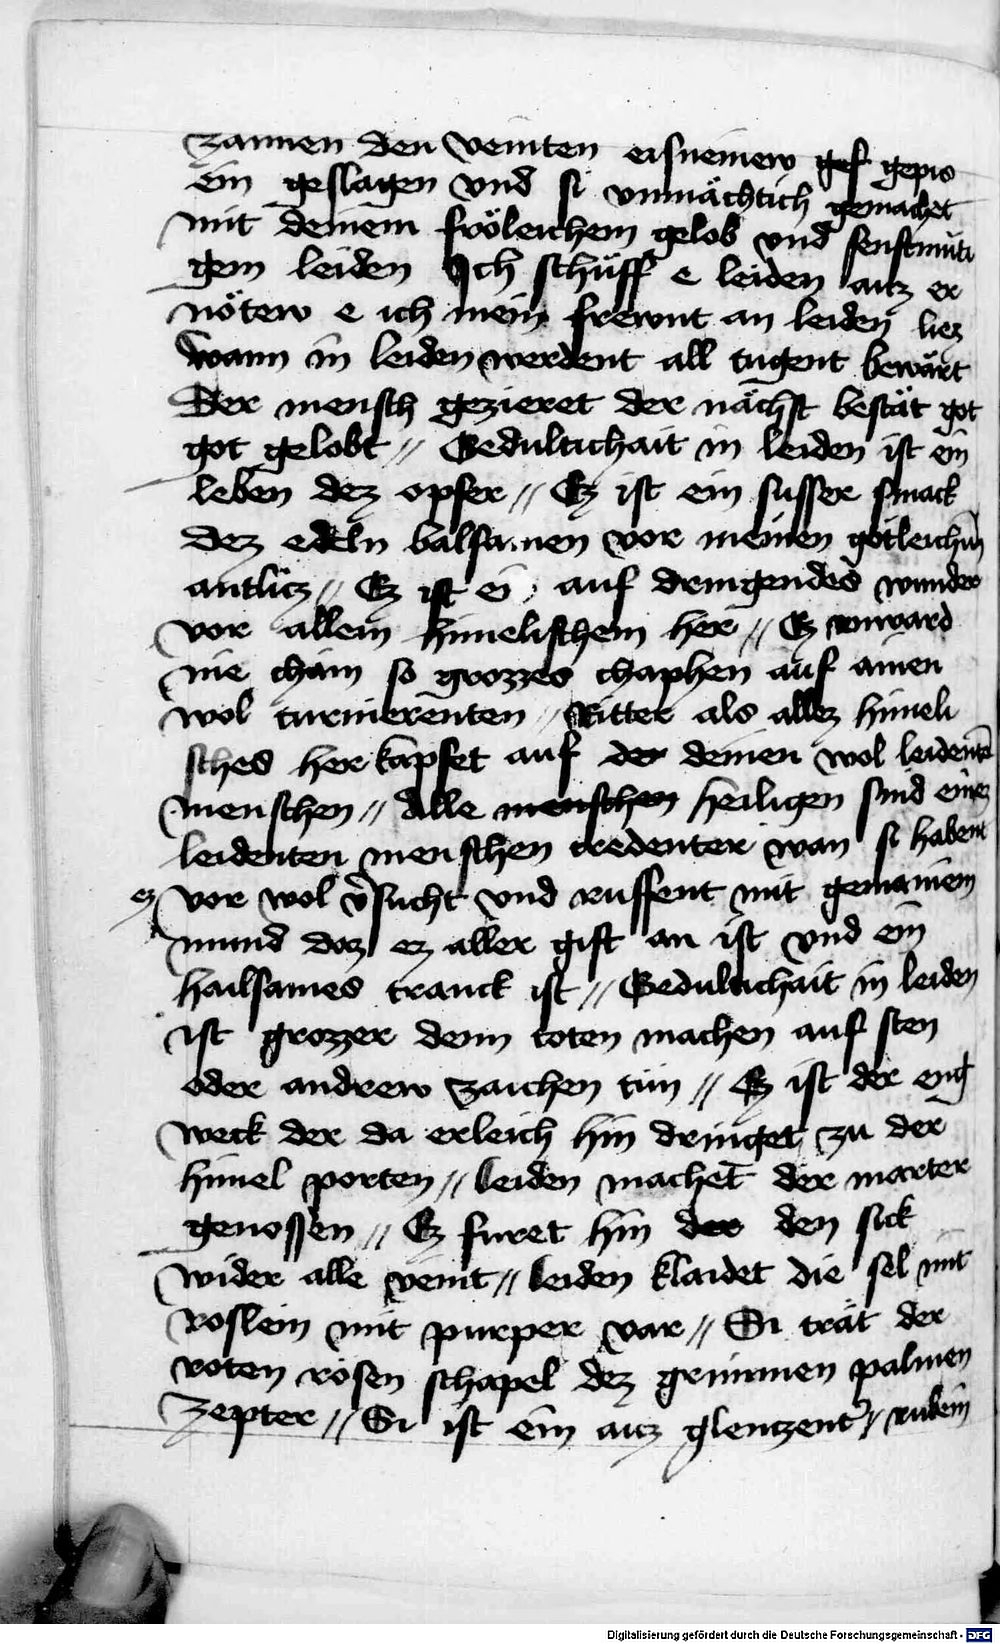 zannen den veinten eisneinew gef gepis
ein geslagen vnd si vnmächtich gemachet
mit deinem fröleichem gelob vnd senftmüti
gem leiden Ich schüff e leiden aitz er
nötew e ich mein frewnt an leiden liez
wann in leiden werdent all tugent bewärt
Der mensch gezieret der nächst bestät got
got gelobt // Gedultichait in leiden ist ein
leben dez opfer // Ez ist ein susser smack
dez edeln balsamen vor meinen götleichn̄
antlicz // Ez ist ei auf dringendes wunder
vor allem himelischem her // Ez wward
nie chäin so grozzes chaphen auf ainen
wol turnierenten // Ritter als allez himeli
sches her kapfet auf der deinen wol leidentē
menschen // Alle menschen heiligen sind einez
leidenten menschen credenter wan si habent
ez vor wol v̄sucht vnd ruffent mit gemainem
mund daz ez aller gift an ist vnd ein
hailsames tranck ist // Gedultichait in leiden
ist grozzer denn toten machen auf sten
oder andrew zaichen tün // Ez ist der eng
weck der da erleich hin dringet zu der
himel porten // leiden machet der marter
genossen // Ez furet hin der den sick
wider alle veint // leiden klaidet die sel mit
roslein mit purper var // Si trät der
roten rosen schapel dez grunnen palmen
Zepter // Si ist ein aitz glentzent // rubein
Digitalisierung gefördert durch die Deutsche Forschungsgemeinschaft - DFG